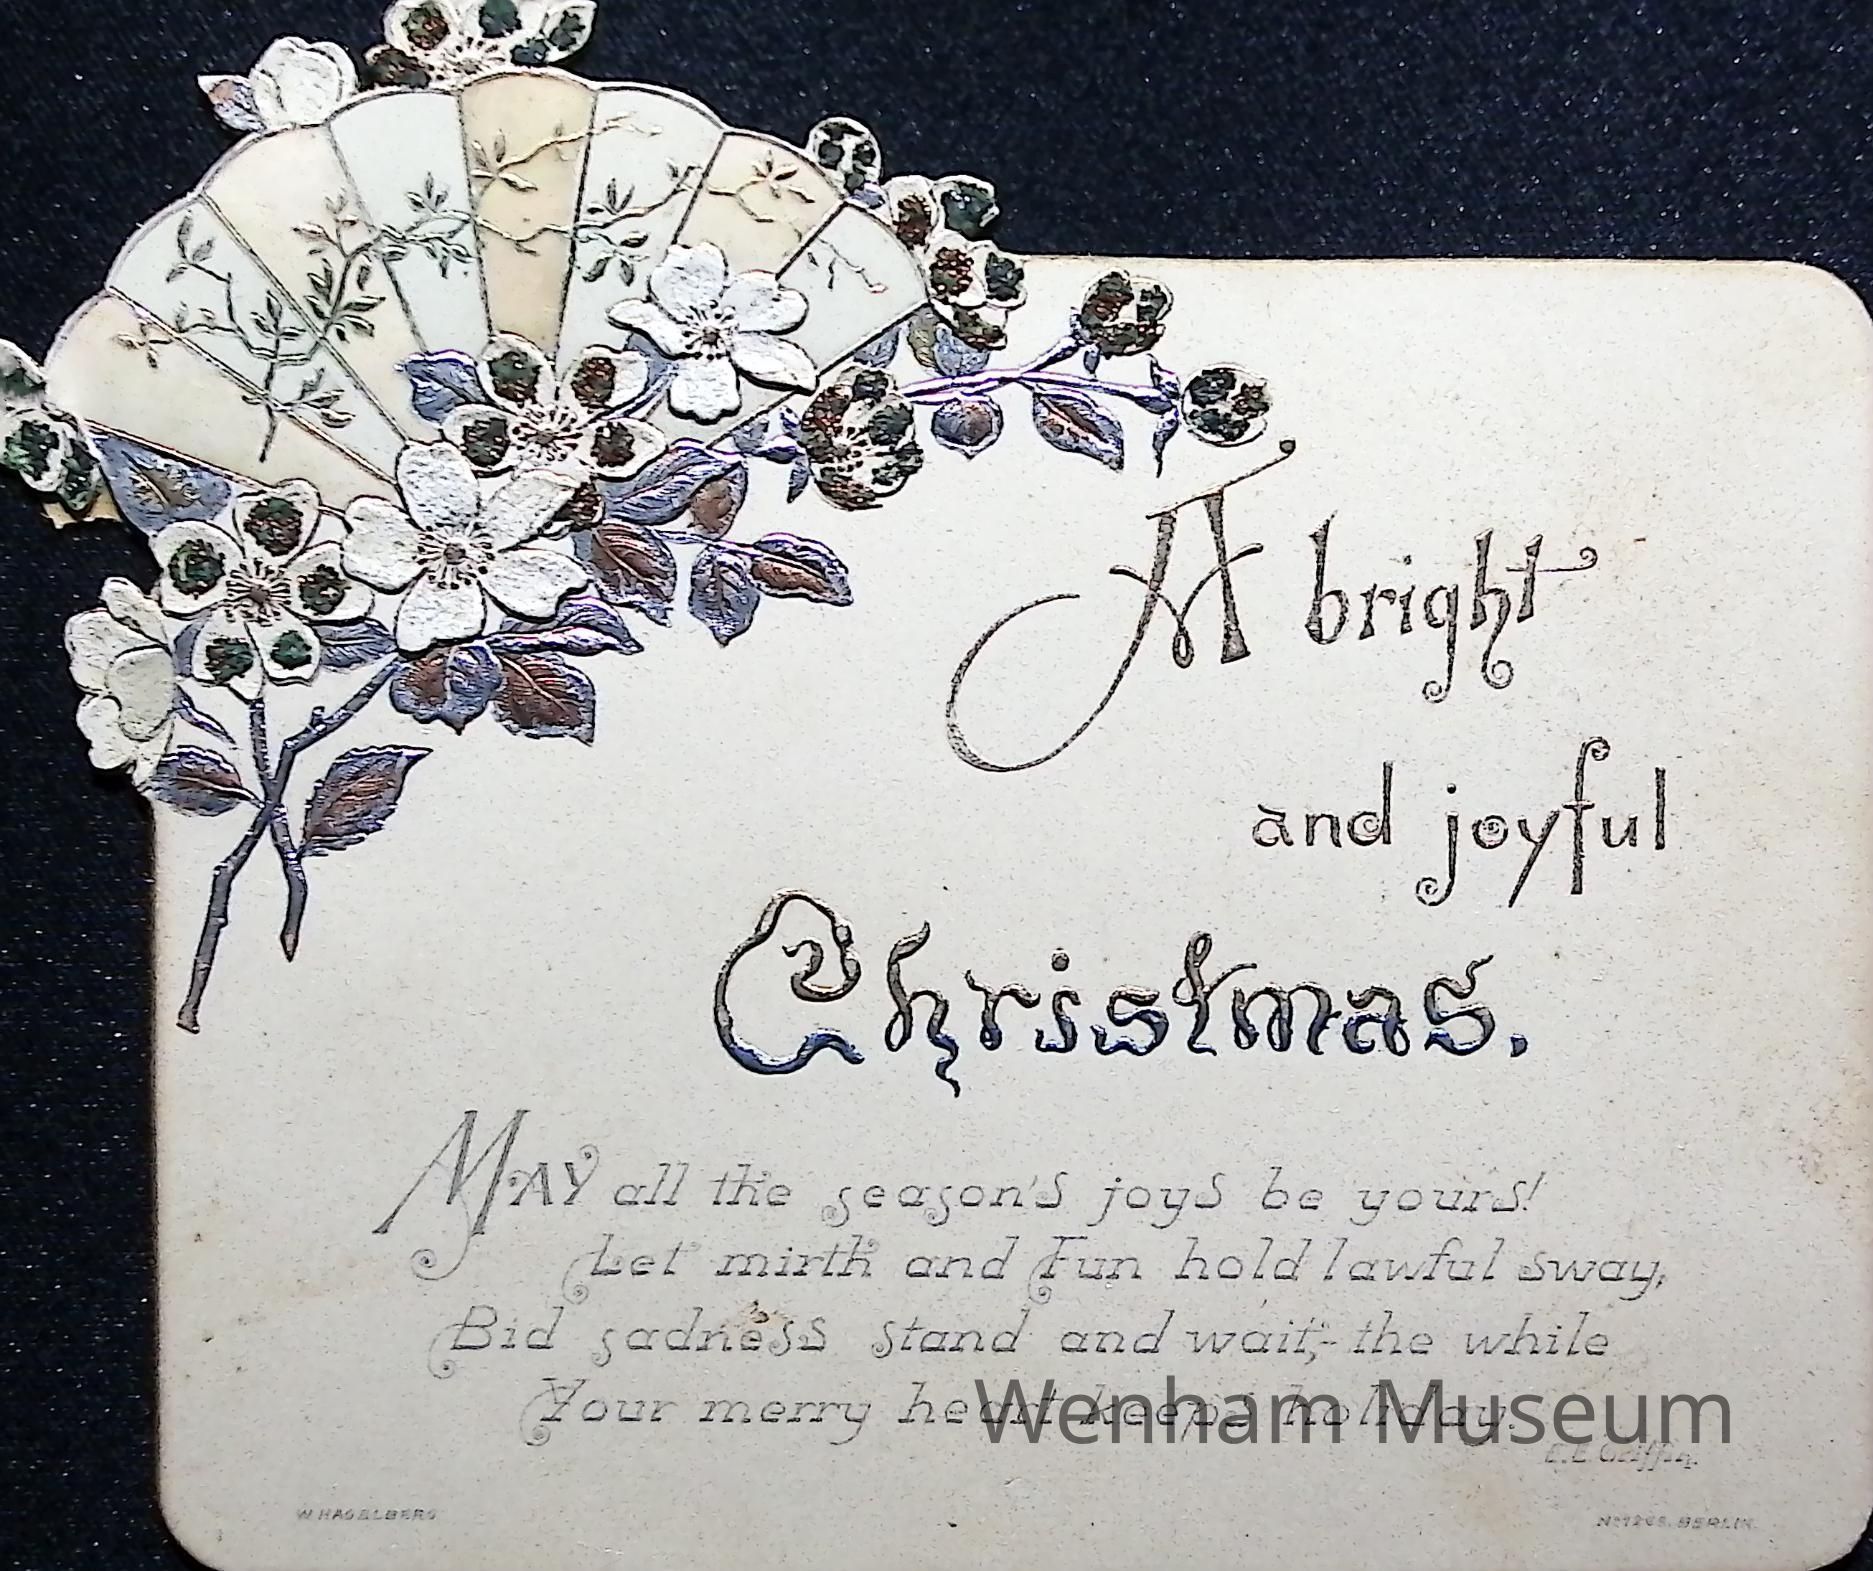 A bright
and joyful
Christmas.
MAY all the season's joys be yours!
Let mirth and Fun hold lawful sway,
Bid sadness stand and wait;- the while
Your merry heart keeps holiday.
Wenham Museum
E.E. Griffin.
W HAGELBERG
BERLIN.